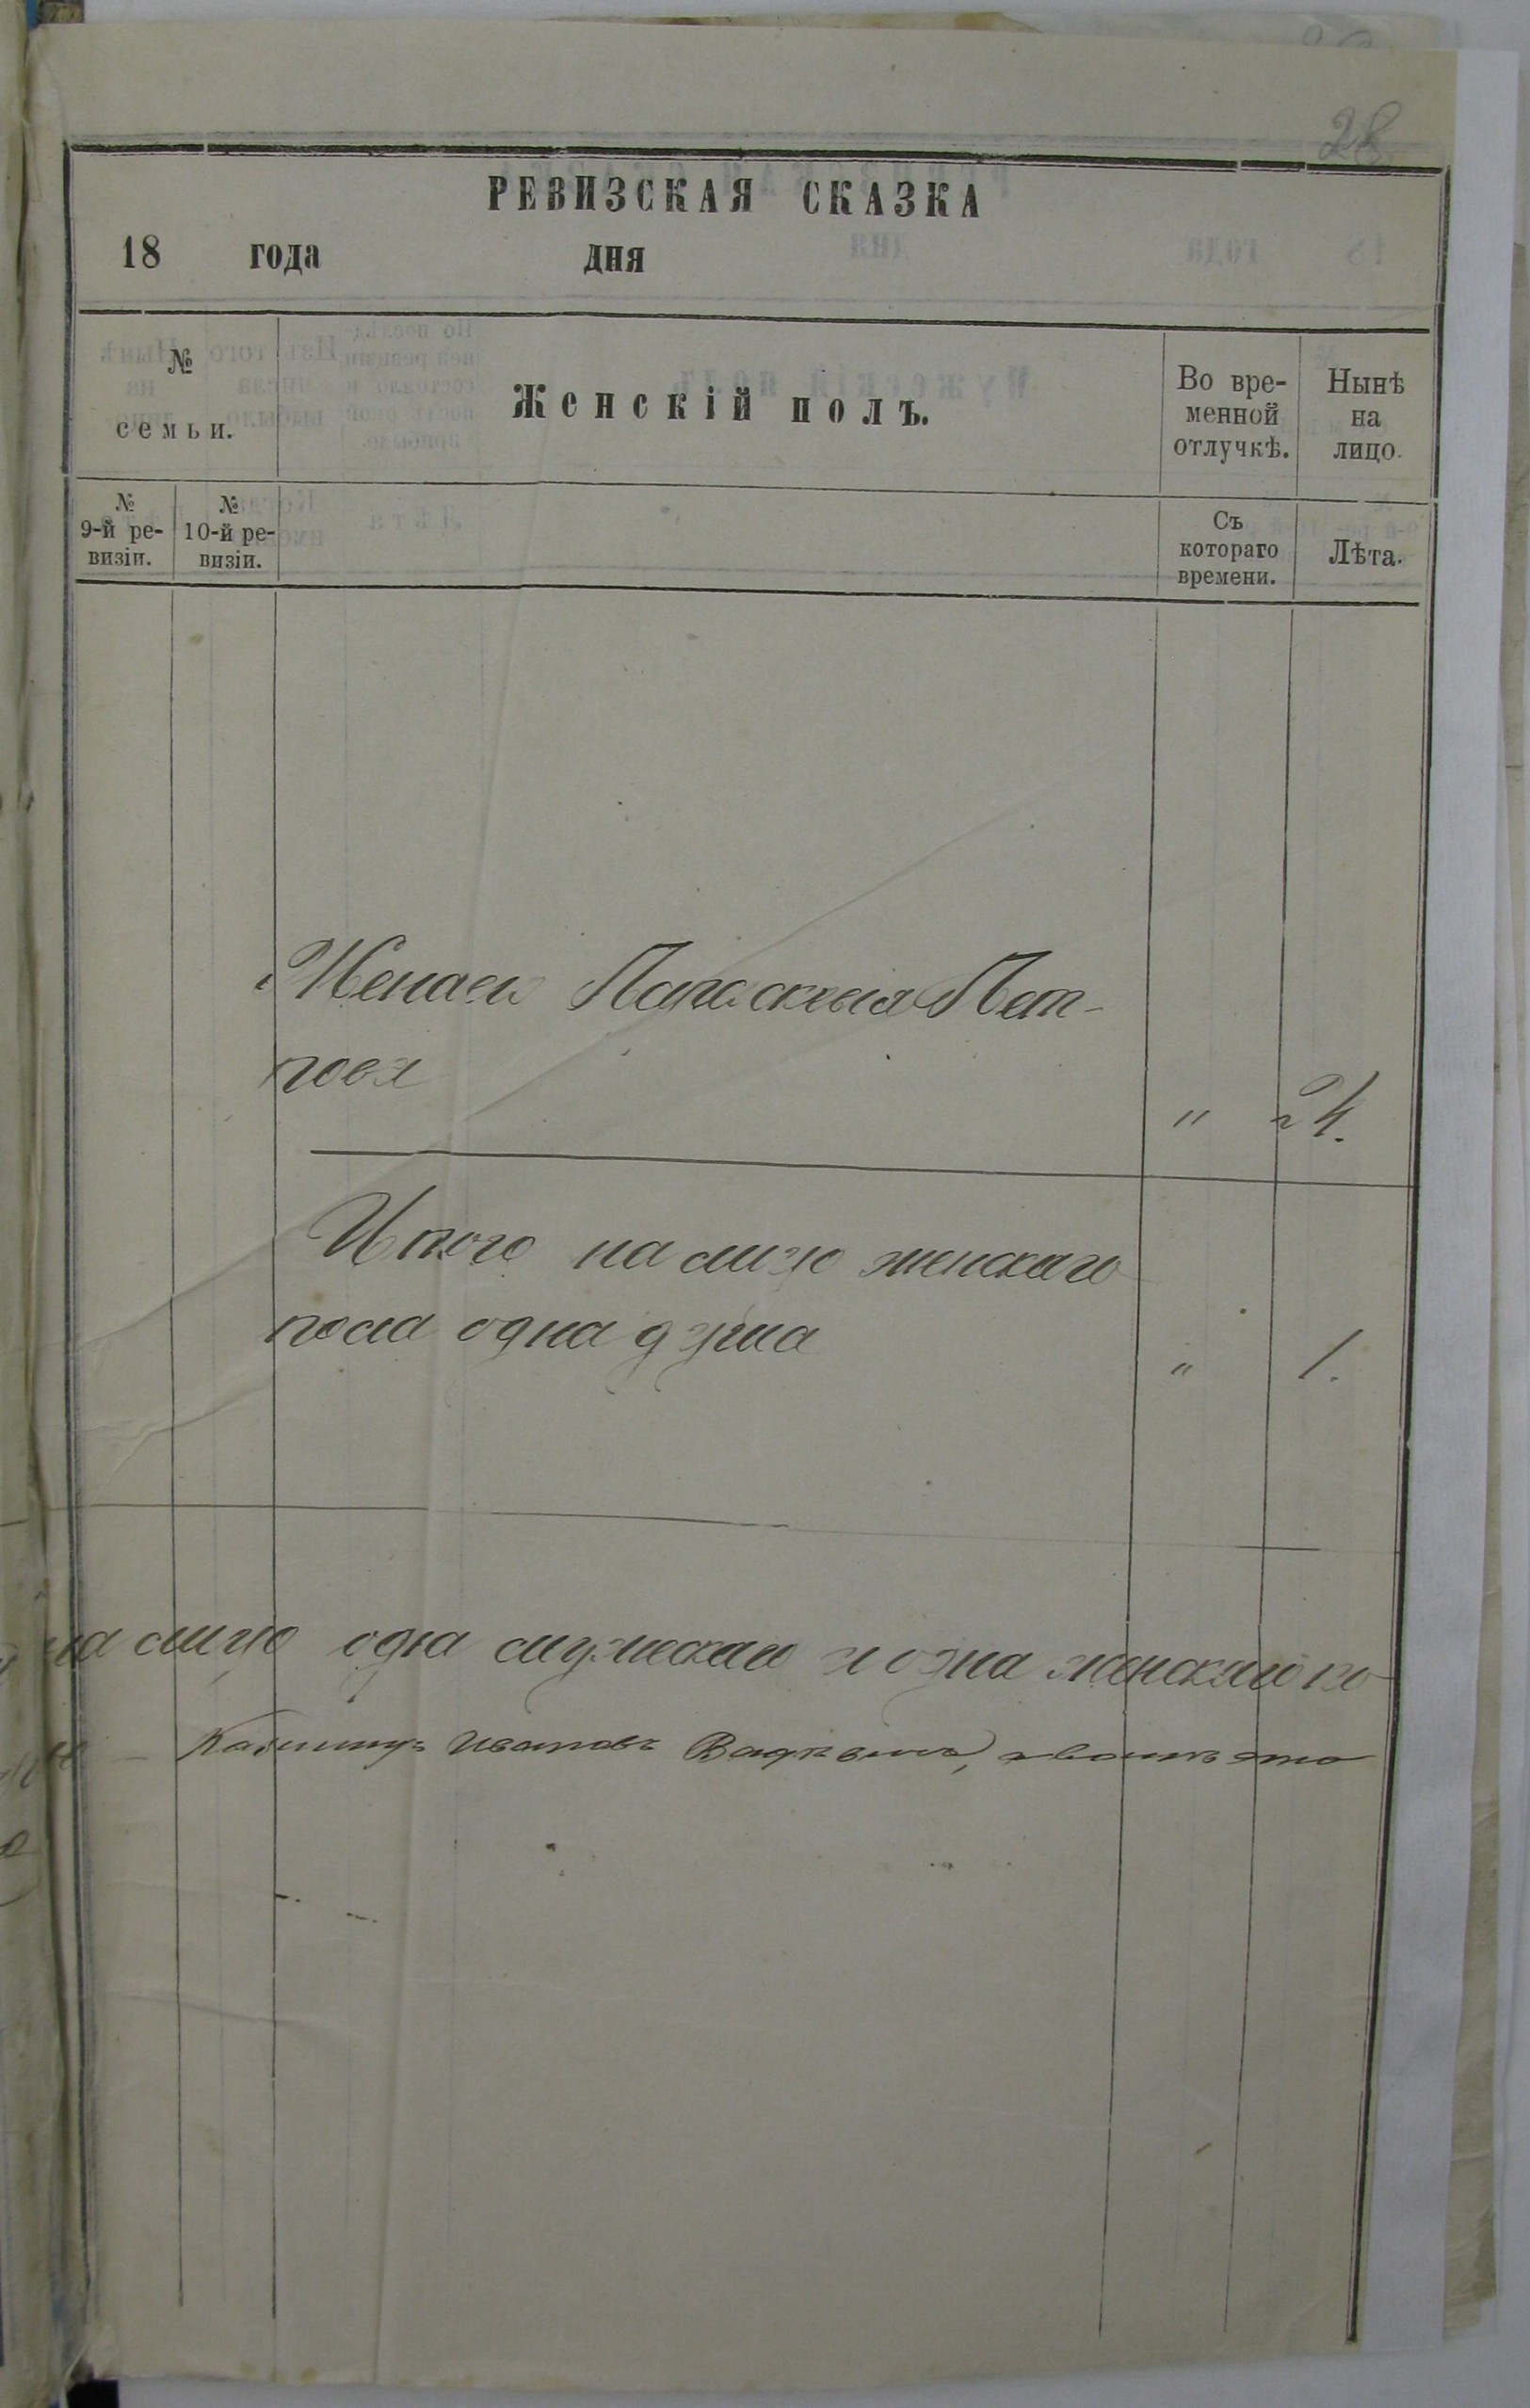 28
РЕВИЗСКАЯ СКАЗКА
18 года дня
№ семьи.
Женскій полъ.
Во вре-
менной
отлучкѣ.
Нынѣ
на
лицо.
№
9-й ре-
визіи.
№
10-й ре-
визіи.
Съ
котораго
времени.
Лѣта.
Жена его Параскевья Пет-
рова " 24.
Итого на лицо женскаго
пола одна душа " 1.
на лицо одна мужескаго и одна женскаго по-
Иванов